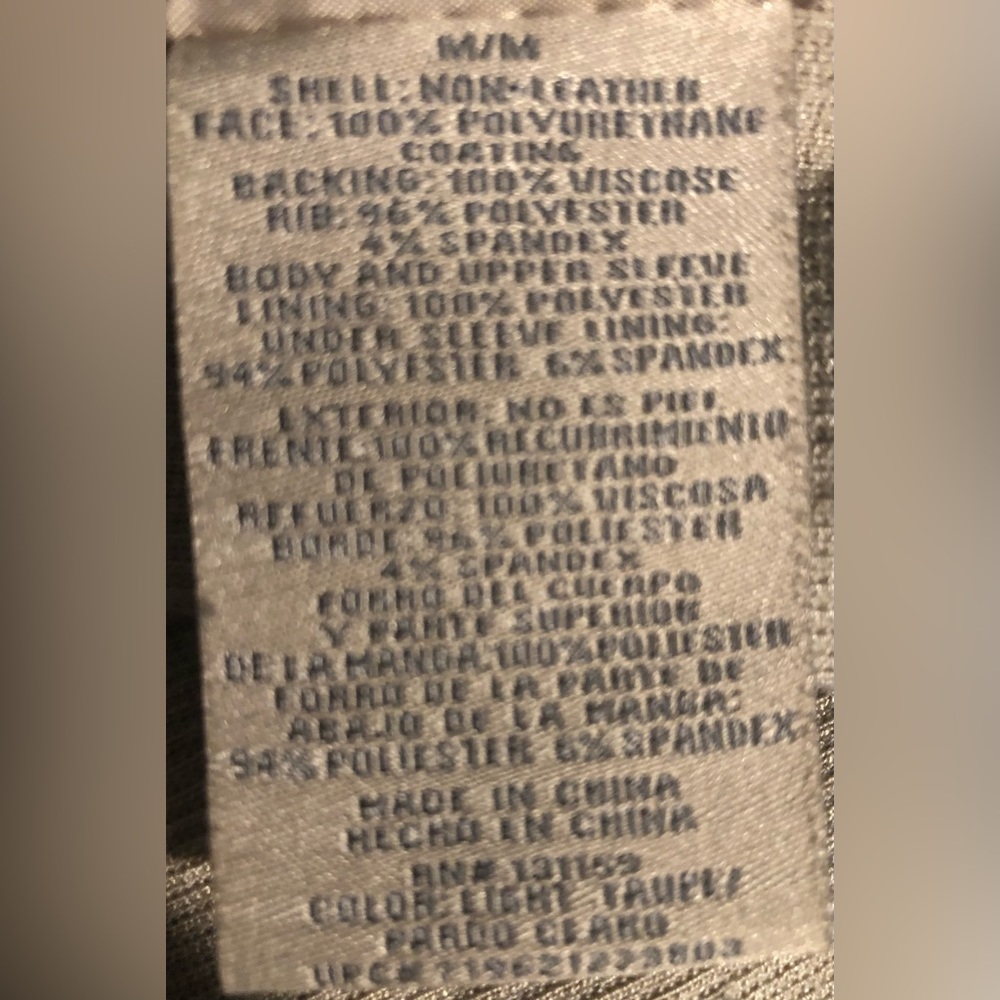 M/M
SHELL: NON-LEATHER
FACE: 100% POLYURETHANE
COATING
BACKING: 100% VISCOSE
RIB: 96% POLYESTER
4% SPANDEX
BODY AND UPPER SLEEVE
LINING: 100% POLYESTER
UNDER SLEEVE LINING:
94% POLYESTER 6% SPANDEX
EXTERIOR: NO ES PIEL
FRENTE: 100% RECUBRIMIENTO
DE POLIURETANO
REFUERZO: 100% VISCOSA
BORDE: 96% POLIESTER
4% SPANDEX
FORRO DEL CUERPO
Y PARTE SUPERIOR
DE LA MANGA: 100% POLIESTER
FORRO DE LA PARTE DE
ABAJO DE LA MANGA:
94% POLIESTER 6% SPANDEX
MADE IN CHINA
HECHO EN CHINA
RN# 131159
COLOR: LIGHT TAUPE/
PARDO CLARO
UPC#